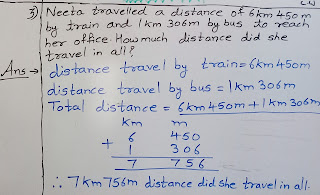 3) Neeta travelled a distance of 6km 450m
by train and 1km 306m by bus to reach
her office How much distance did she
travel in all?
Ans → distance travel by train=6km450m
distance travel by bus = 1km 306m
Total distance = 6km450m+1km306m
km m
6 450
+ 1 306
7 756
∴ 7km756m distance did she travel in all.